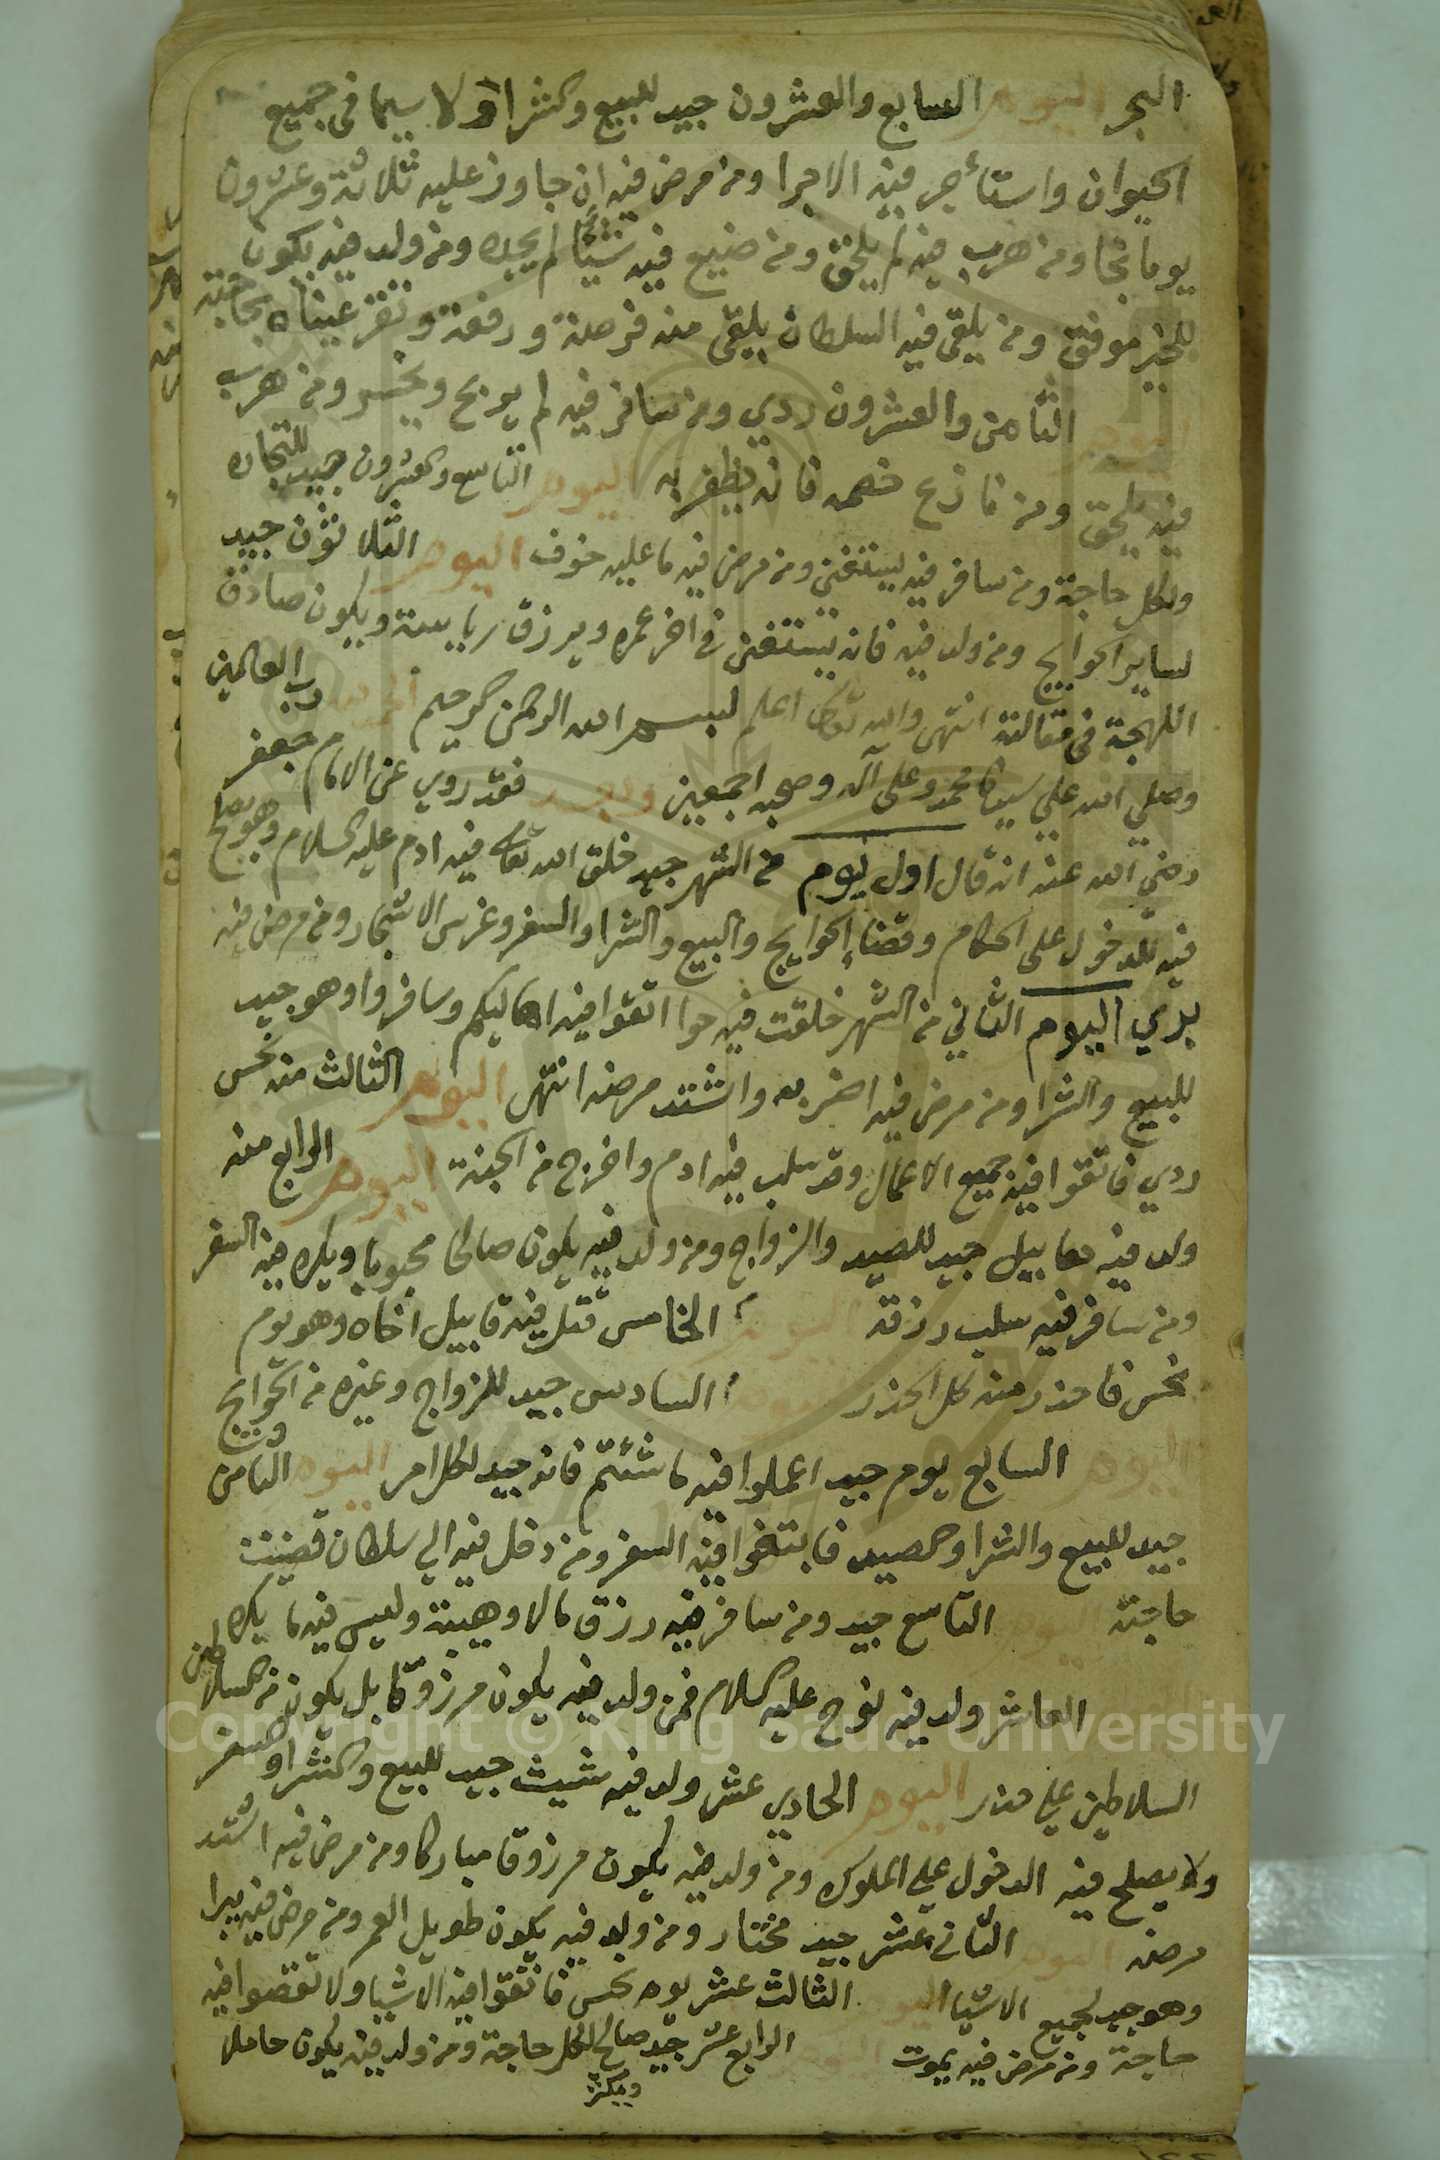 البحر اليوم السابع والعشرون جيد للبيع والشرا ولا سيما في جميع
الحيوان واستأجر فيه الاجرا ومن مرض فيه ان جاوز عليه ثلاثة وعشرون
يوما نجا ومن هرب فيه لم يلحق ومن ضيع فيه شيئا لم يجده ومن ولد فيه يكون
للخير موفق ومن يلقى فيه السلطان يلقى منه فرصة ورفعة وتقر عيناه بحاجته
اليوم الثامن والعشرون ردي ومن سافر فيه لم يربح ويخسر ومن هرب
فيه يلحق ومن نازع خصمه فانه يظفر به اليوم التاسع والعشرون جيد للتجاره
ولكل حاجة ومن سافر فيه يستغني ومن مرض فيه ما عليه خوف اليوم الثلاثون جيد
لساير الحوايج ومن ولد فيه فانه يستغني في اخر عمره ويرزق رياسة ويكون صادق
اللهجة في مقالته انتهى والله تعالى اعلم بسم الله الرحمن الرحيم الحمد لله رب العالمين
وصلي الله علي سيدنا محمد وعلى آله وصحبه اجمعين وبعد فقد روي عن الامام جعفر
رضي الله عنه انه قال اول يوم من الشهر جيد خلق الله تعالى فيه ادم عليه السلام وهو يصلح
فيه للدخول على الحكام وقضاء الحوايج والبيع والشرا والسفر وغرس الاشجار ومن مرض فيه
بري اليوم الثاني من الشهر خلقت فيه حوا اتقوا فيه اهاليكم وسافروا وهو جيد
للبيع والشرا ومن مرض فيه اضر به واشتد مرضه انتهى اليوم الثالث منه نحس
ردي فاتقوا فيه جميع الاعمال وقد سلب فيه ادم واخرج من الجنة اليوم الرابع منه
ولد فيه هابيل جيد للصيد والزواج ومن ولد فيه يكون صالحا محبوبا ويكره فيه السفر
ومن سافر فيه سلب رزقه اليوم الخامس قتل فيه قابيل اخاه وهو يوم
نحس فاحذر منه كل الحذر اليوم السادس جيد للزواج وغيره من الحوايج
اليوم السابع يوم جيد اعملوا فيه ما شئتم فانه جيد لكل امر اليوم الثامن
جيد للبيع والشرا والصيد فابتغوا فيه السفر ومن دخل فيه الي سلطان قضيت
حاجته اليوم التاسع جيد ومن سافر فيه رزق مالا وهيبة وليس فيه ما يكره
العاشر ولد فيه نوح عليه السلام فمن ولد فيه يكون مرزوقا بل يكون من السلاطين
السلاطين علي حذر اليوم الحادي عشر ولد فيه شيث جيد للبيع والشرا والسفر
ولا يصلح فيه الدخول علي الملوك ومن ولد فيه يكون مرزوقا مباركا ومن مرض فيه اشتد
مرضه اليوم الثاني عشر جيد مختار ومن ولد فيه يكون طويل العمر ومن مرض فيه يبرا
وهو جيد لجميع الاشيا اليوم الثالث عشر يوم نحس فاتقوا فيه الاشيا ولا تقضوا فيه
حاجة ومن مرض فيه يموت اليوم الرابع عشر جيد صالح لكل حاجة ومن ولد فيه يكون حاملا
Copyright © King Saud University